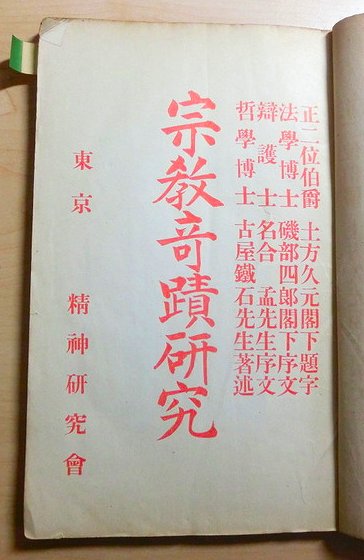 正二位伯爵 土方久元閣下題字
法學博士 磯部四郎閣下序文
辯護士 名合孟先生序文
哲學博士 古屋鐵石先生著述
宗教奇蹟研究
東京 精神研究會